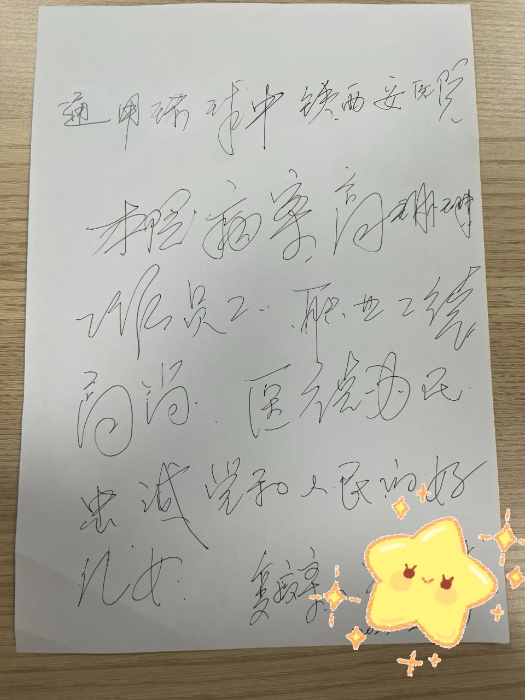 通用环球中铁西安医院
本院病案高珊珊
工作员工. 职业工绩
高尚. 医德为民
忠诚党和人民的好
儿女. 复病案